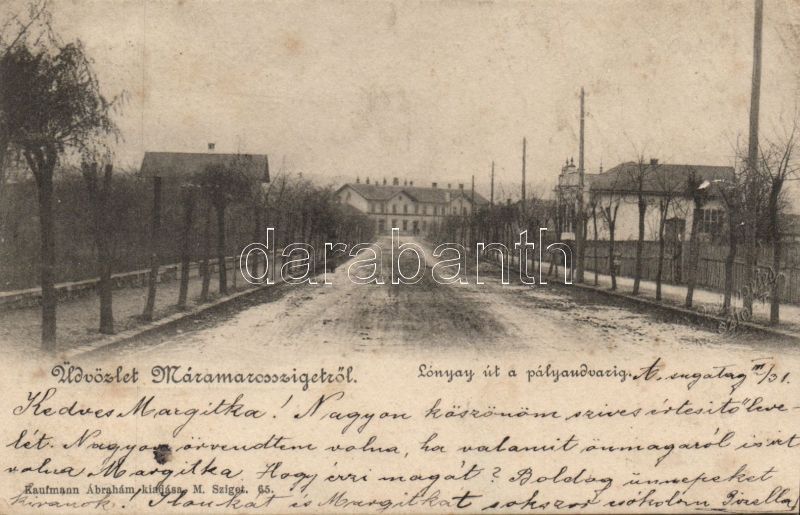 darabanth
Üdvözlet Máramarosszigetről.
Lónyay út a pályaudvarig.
A. sugatag III/31
Kedves Margitka! Nagyon köszönöm szives értesitőleve-
lét. Nagyon örvendtem volna, ha valamit önmagáról is írt
volna Margitka. Hogy érzi magát? Boldog ünnepeket
Kaufmann Ábrahám kiadása, M. Sziget. 65.
kivánok! és Margitkát sokszor csókolom Gizella